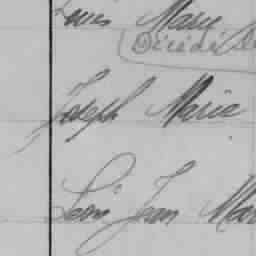 Louis Marie
Décédé
Joseph Marie
Léon Jean Mar